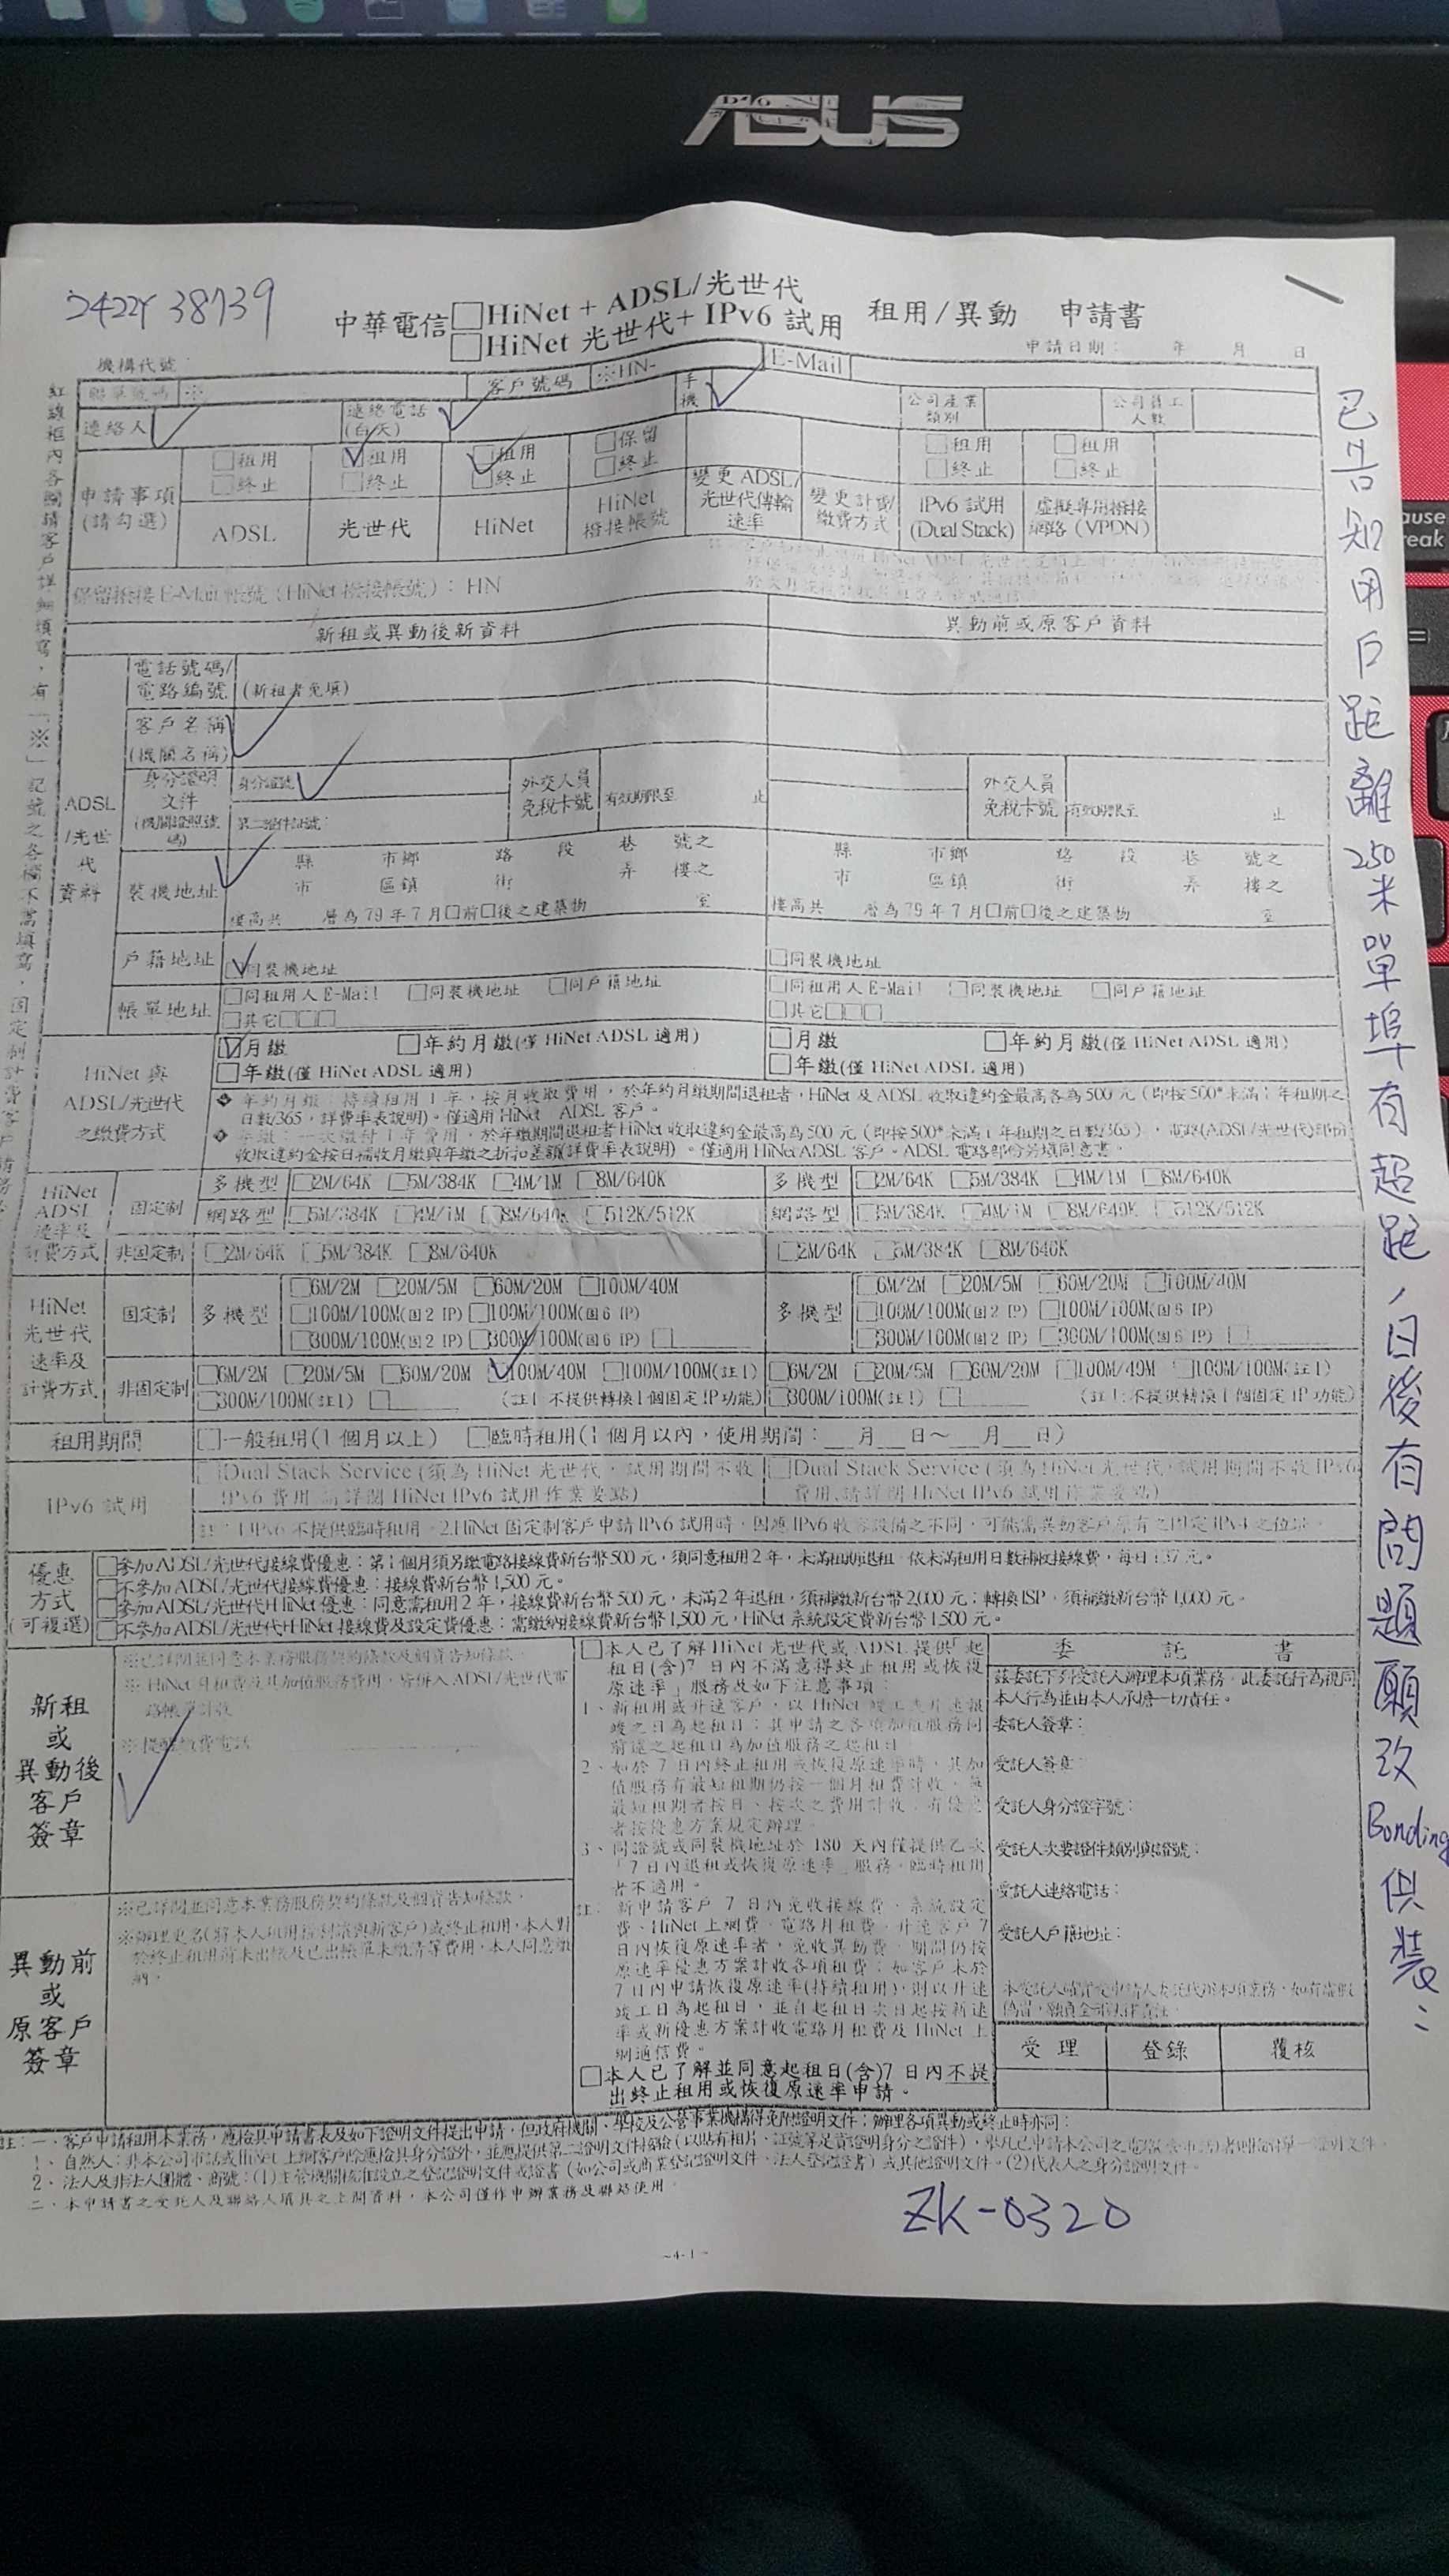 ASUS
2422Y 38739
中華電信 □HiNet + ADSL/光世代
□HiNet 光世代+ IPv6 試用
租用/異動 申請書
機構代號
申請日期: 年 月 日
聯單號碼 ※ 客戶號碼 ※HN- E-Mail
連絡人 連絡電話(白天) 手機 公司產業類別 公司員工人數
申請事項(請勾選)
□租用 □租用 □租用 □保留 □租用 □租用
□終止 □終止 □終止 □終止 □終止 □終止
ADSL 光世代 HiNet HiNet撥接帳號 變更 ADSL/光世代傳輸速率 變更計費/繳費方式 IPv6 試用(Dual Stack) 虛擬專用撥接網路(VPDN)
保留撥接 E-Mail 帳號(HiNet 撥接帳號): HN
新租或異動後新資料 異動前或原客戶資料
ADSL/光世代資料
電話號碼/電路編號 (新租者免填)
客戶名稱(機關名稱)
身分證明文件(機關證照號碼) 身分證號 外交人員免稅卡號 有效期限至 止 外交人員免稅卡號 有效期限至 止
第二證件證號:
裝機地址 縣 市鄉 路 段 巷 號之 縣 市鄉 路 段 巷 號之
市 區鎮 街 弄 樓之 市 區鎮 街 弄 樓之
樓高共 層為 79 年 7 月□前□後之建築物 室 樓高共 層為 79 年 7 月□前□後之建築物 室
戶籍地址 □同裝機地址 □同裝機地址
帳單地址 □同租用人 E-Mail □同裝機地址 □同戶籍地址 □同租用人 E-Mail □同裝機地址 □同戶籍地址
□其它□□□ □其它□□□
HiNet 與 ADSL/光世代之繳費方式
□月繳 □年約月繳(僅 HiNet ADSL 適用) □月繳 □年約月繳(僅 HiNet ADSL 適用)
□年繳(僅 HiNet ADSL 適用) □年繳(僅 HiNet ADSL 適用)
年約月繳:持續租用 1 年,按月收取費用,於年約月繳期間退租者,HiNet 及 ADSL 收取違約金最高各為 500 元(即按 500*未滿 1 年租期之
日數/365,詳費率表說明)。僅適用 HiNet ADSL 客戶。
年繳:一次繳付 1 年費用,於年繳期間退租者 HiNet 收取違約金最高為 500 元(即按 500*未滿 1 年租期之日數/365),電路(ADSL/光世代)部份
收取違約金按日補收月繳與年繳之折扣差額(詳費率表說明)。僅適用 HiNet ADSL 客戶。ADSL 電路部份另填同意書。
HiNet ADSL 速率及計費方式
固定制 多機型 □2M/64K □5M/384K □4M/1M □8M/640K 多機型 □2M/64K □5M/384K □4M/1M □8M/640K
網路型 □5M/384K □4M/1M □8M/640K □512K/512K 網路型 □5M/384K □4M/1M □8M/640K □512K/512K
非固定制 □2M/64K □5M/384K □8M/640K □2M/64K □5M/384K □8M/640K
HiNet 光世代速率及計費方式
固定制 多機型 □6M/2M □20M/5M □60M/20M □100M/40M 多機型 □6M/2M □20M/5M □60M/20M □100M/40M
□100M/100M(固 2 IP) □100M/100M(固 6 IP) □100M/100M(固 2 IP) □100M/100M(固 6 IP)
□300M/100M(固 2 IP) □300M/100M(固 6 IP) □ □300M/100M(固 2 IP) □300M/100M(固 6 IP) □
非固定制 □6M/2M □20M/5M □60M/20M □100M/40M □100M/100M(註1) □6M/2M □20M/5M □60M/20M □100M/40M □100M/100M(註1)
□300M/100M(註1) □ (註1:不提供轉換 1 個固定 IP 功能) □300M/100M(註1) □ (註1:不提供轉換 1 個固定 IP 功能)
租用期間 □一般租用(1 個月以上) □臨時租用(1 個月以內,使用期間:__月__日~__月__日)
IPv6 試用 □Dual Stack Service (須為 HiNet 光世代,試用期間不收 □Dual Stack Service (須為 HiNet 光世代,試用期間不收 IPv6
IPv6 費用,請詳閱 HiNet IPv6 試用作業要點) 費用,請詳閱 HiNet IPv6 試用作業要點)
註:1.IPv6 不提供臨時租用。2.HiNet 固定制客戶申請 IPv6 試用時,因應 IPv6 收容設備之不同,可能需異動客戶原有之固定 IPv4 之位址。
優惠方式(可複選)
□參加 ADSL/光世代接線費優惠:第 1 個月須另繳電路接線費新台幣 500 元,須同意租用 2 年,未滿租期退租,依未滿租用日數補收接線費,每日 1.37 元。
□不參加 ADSL/光世代接線費優惠:接線費新台幣 1,500 元。
□參加 ADSL/光世代+HiNet 優惠:同意需租用 2 年,接線費新台幣 500 元,未滿 2 年退租,須補繳新台幣 2,000 元;轉換 ISP,須補繳新台幣 1,000 元。
□不參加 ADSL/光世代+HiNet 接線費及設定費優惠:需繳納接線費新台幣 1,500 元,HiNet 系統設定費新台幣 1,500 元。
新租或異動後客戶簽章
※已詳閱並同意本業務服務契約條款及個資告知條款。
※ HiNet 月租費及其加值服務費用,皆併入 ADSL/光世代電
路帳單計收
※提醒繳費電話
異動前或原客戶簽章
※已詳閱並同意本業務服務契約條款及個資告知條款。
※辦理更名(將本人租用權利讓與新客戶)或終止租用,本人對
於終止租用前未出帳及已出帳單未繳清等費用,本人同意繳
納。
□本人已了解 HiNet 光世代或 ADSL 提供「起
租日(含)7 日內不滿意得終止租用或恢復
原速率」服務及如下注意事項:
1、新租用或升速客戶,以 HiNet 竣工或升速報
竣之日為起租日;其申請之各項加租服務同
前述之起租日為加值服務之起租日
2、如於 7 日內終止租用或恢復原速率時,其加
值服務有最短租期仍按一個月租費計收,無
最短租期者按日、按次之費用計收;有優惠
者按優惠方案規定辦理。
3、同證號或同裝機地址於 180 天內僅提供乙次
「7 日內退租或恢復原速率」服務。臨時租用
者不適用。
註:新申請客戶 7 日內免收接線費、系統設定
費、HiNet 上網費、電路月租費,升速客戶 7
日內恢復原速率者,免收異動費,期間仍按
原速率優惠方案計收各項租費;如客戶未於
7 日內申請恢復原速率(持續租用),則以升速
竣工日為起租日,並自起租日次日起按新速
率或新優惠方案計收電路月租費及 HiNet 上
網通信費。
□本人已了解並同意起租日(含)7 日內不提
出終止租用或恢復原速率申請。
委 託 書
茲委託下列受託人辦理本項業務,此委託行為視同
本人行為並由本人承擔一切責任。
委託人簽章:
受託人簽章:
受託人身分證字號:
受託人次要證件類別與證號:
受託人連絡電話:
受託人戶籍地址:
本受託人確實受申請人委託代辦本項業務,如有虛假
偽冒,願負全部法律責任。
受理 登錄 覆核
註:一、客戶申請租用本業務,應檢具申請書表及如下證明文件提出申請,但政府機關、學校及公營事業機構得免附證明文件;辦理各項異動或終止時亦同:
1、自然人:非本公司市話或HiNet 上網客戶除應檢具身分證外,並應提供第二證明文件核驗
2、法人及非法人團體、商號:(1)主管機關核准設立之登記證明文件或證書(如公司或商業登記證明文件、法人登記證書)或其他證明文件。(2)代表人之身分證明文件。
二、本申請書之受託人及聯絡人填具之上開資料,本公司僅作申辦業務及聯絡使用。
ZK-0320
~4-1~
已告知用戶距離250米單埠有超距,日後有問題願改Bonding供裝: